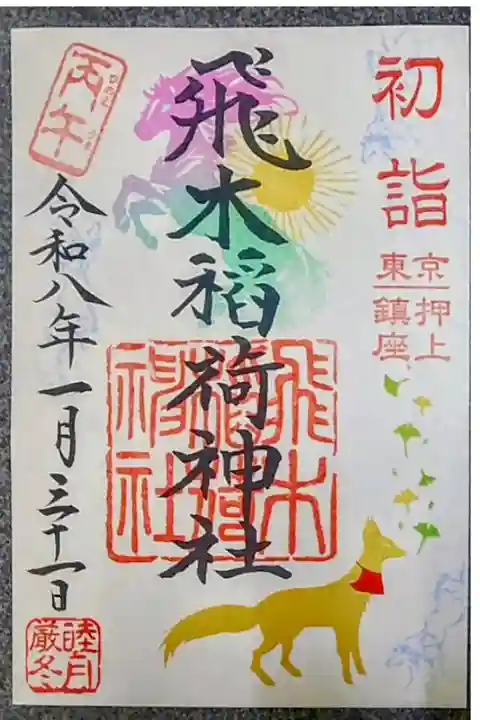 初詣
東京押上
鎮座
飛木稲荷神社
飛木
稲荷
神社
丙午
ひのえ うま
令和八年一月三十一日
睦月
厳冬